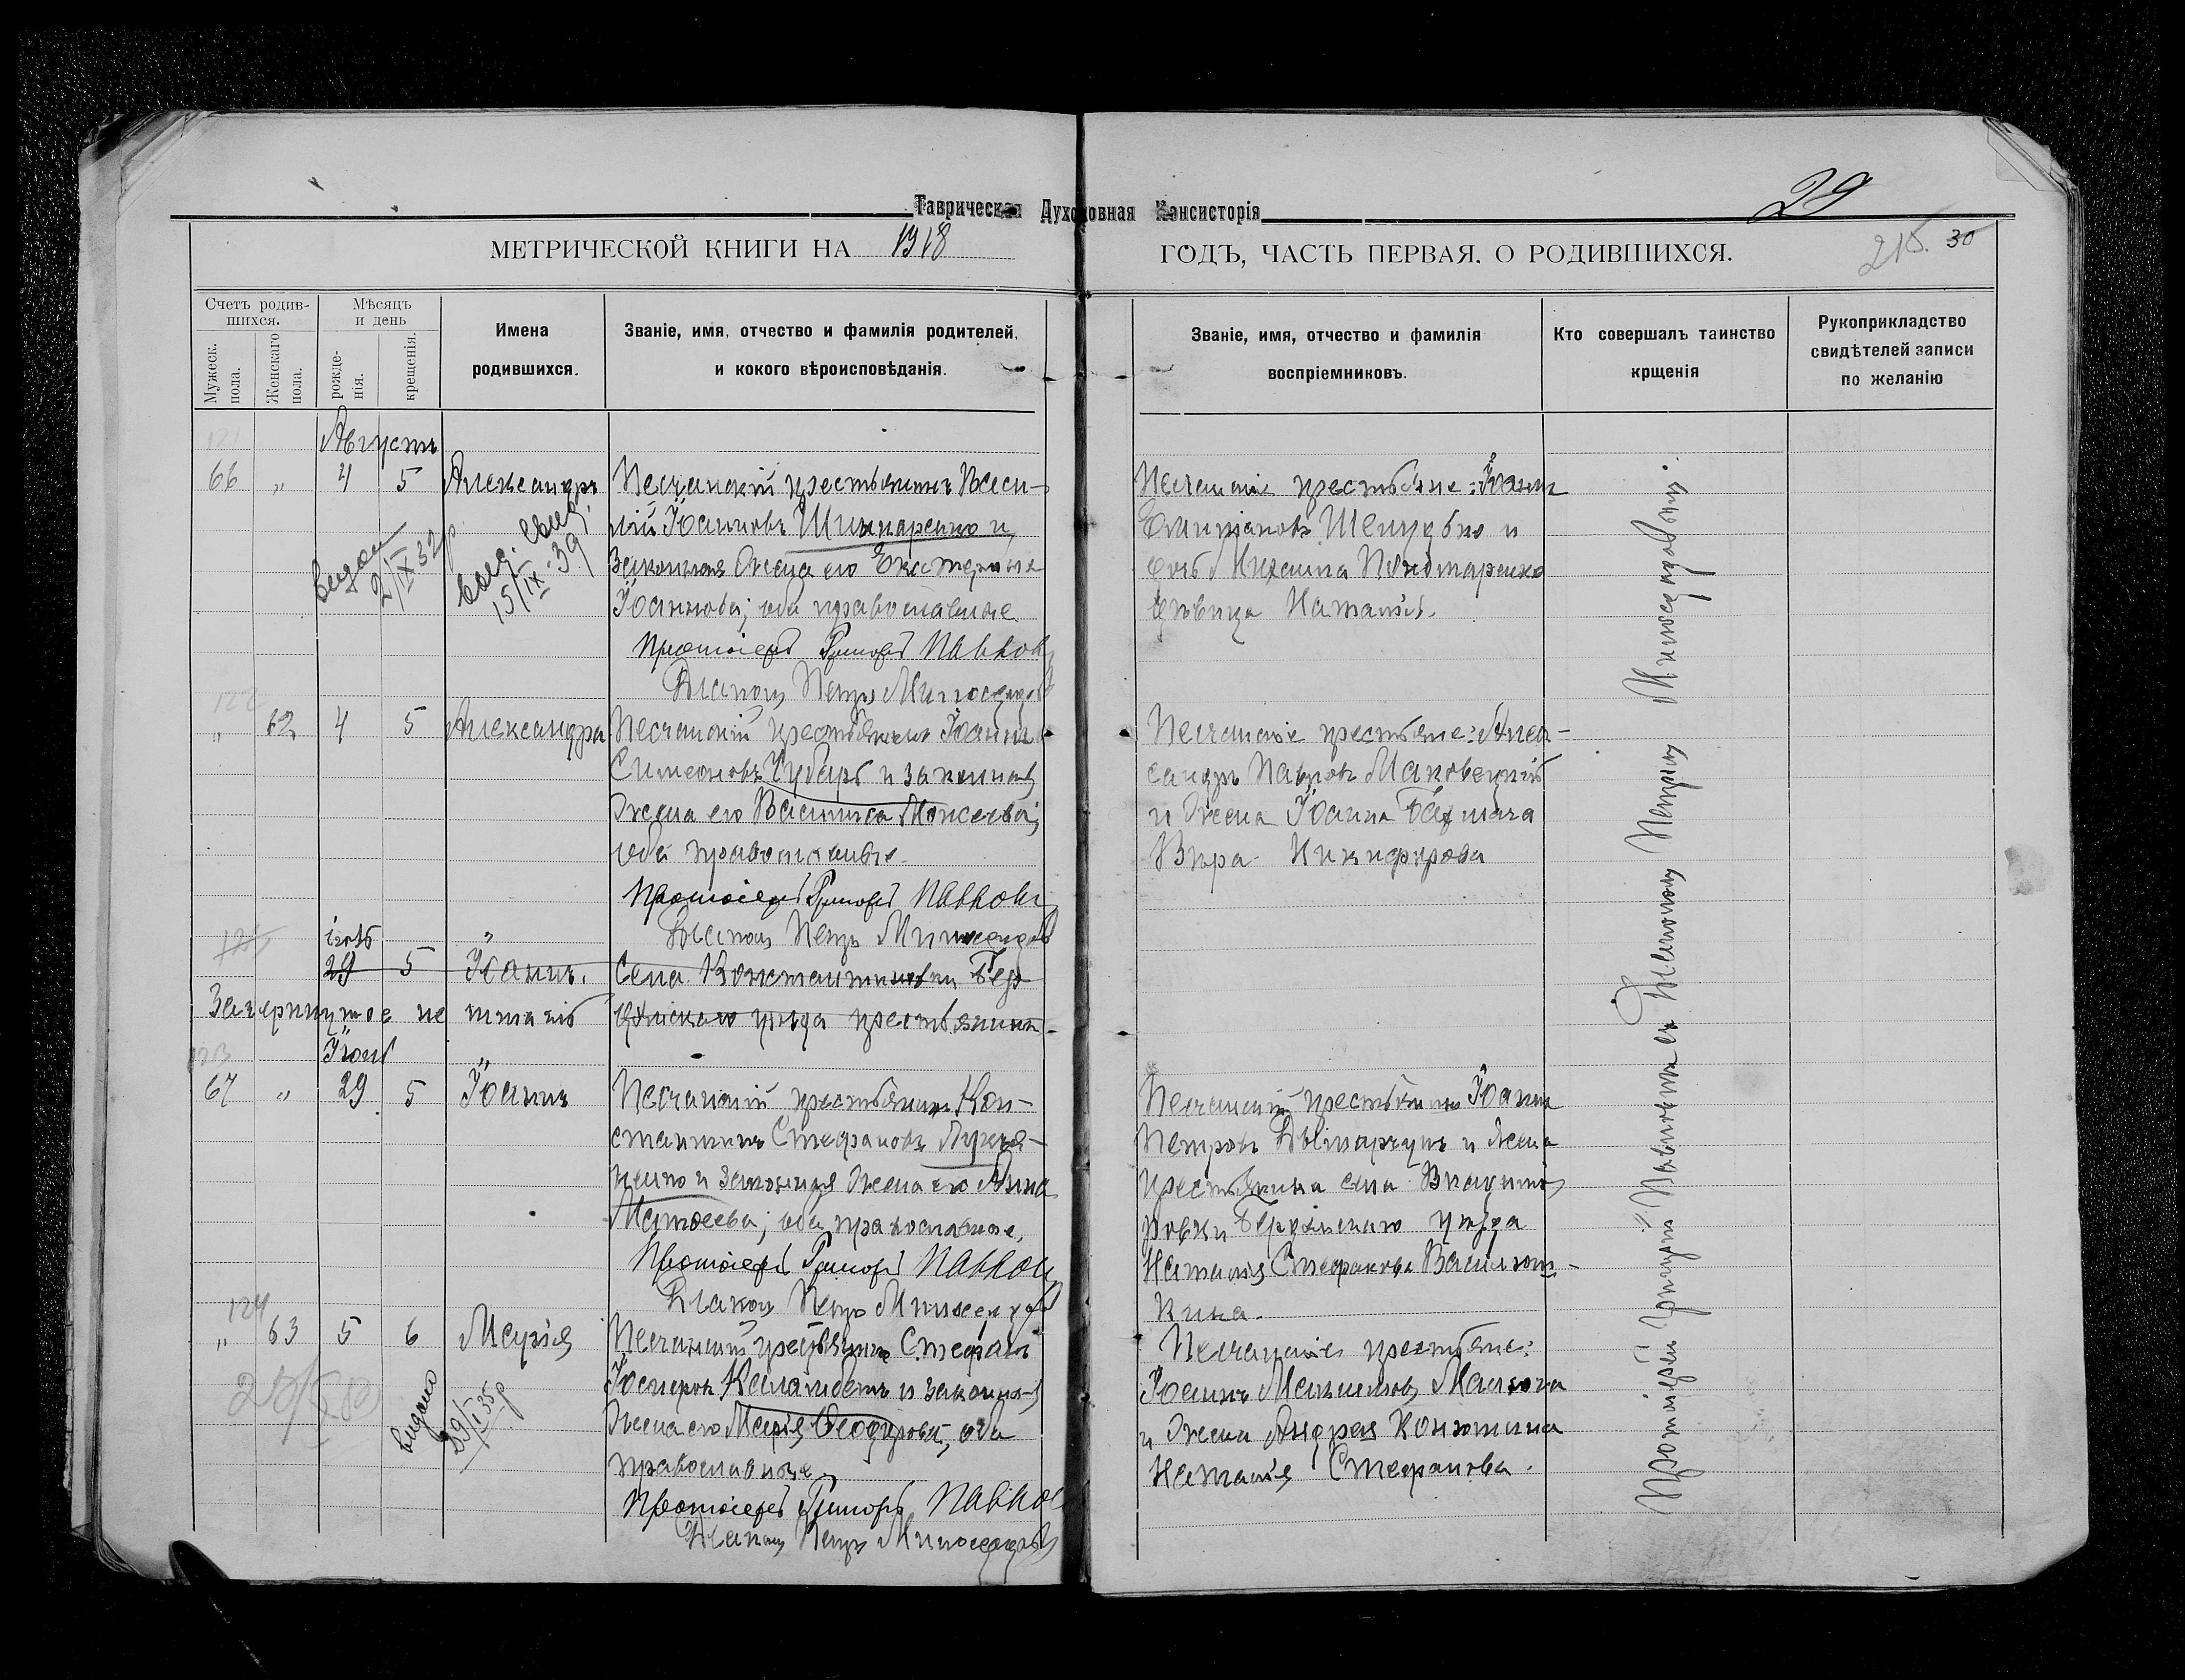 Таврическая Духовная Консисторія
29
МЕТРИЧЕСКОЙ КНИГИ НА 1918
ГОДЪ, ЧАСТЬ ПЕРВАЯ. О РОДИВШИХСЯ.
215. 30
Счетъ родив-
шихся.
Мужеск.
пола.
Женскаго
пола.
Мѣсяцъ
и день
рожде-
нія.
крещенія.
Имена
родившихся.
Званіе, имя, отчество и фамилія родителей,
и кокого вѣроисповѣданія.
Званіе, имя, отчество и фамилія
воспріемниковъ.
Кто совершалъ таинство
крщенія
Рукоприкладство
свидѣтелей записи
по желанію
121
Августъ
66 „ 4 5 Александръ
Песчанскій крестьянинъ Васи-
лій Іоанновъ Шинкаренко и
Законная Жена его Екатерина
Іоаннова; оба православные.
Протоіерей Григорій Павловъ
Діаконъ Петръ Милосердовъ
Песчанскіе крестьяне: Іоаннъ
и
дочь Михаила Пономаренко
дѣвица Наталія.
видан
2/IX 32 р
15/IX-39
122
„ 62 4 5 Александра
Песчанскій крестьянинъ Іоаннъ
Симеоновъ Чубарь и законная
Жена его Василиса Моисеева;
оба православные.
Протоіерей Григорій Павловъ
Діаконъ Петръ Милосердовъ
Песчанскіе крестьяне: Алек-
сандръ Павловъ Маковецкій
и Жена Іоанна
Вѣра Никифорова
125
іюль „
29 5 Іоаннъ.
Села Константиновки Бер-
дянскаго уѣзда крестьянинъ
Зачеркнутое не читать
123
Іюль „
67 „ 29 5 Іоаннъ
Песчанскій крестьянинъ Кон-
стантинъ Стефановъ Лукья-
ненко и Законная Жена его Анна
Матѳеева; оба православные.
Протоіерей Григорій Павловъ
Діаконъ Петръ Милосердовъ
Песчанскій крестьянинъ Іоаннъ
Петровъ и Жена
крестьянина села Владими-
ровки Бердянскаго уѣзда
Наталія Стефанова Васильют-
кина.
124
„ 63 5 6 Марія
Песчанскій крестьянинъ Стефанъ
Іосифовъ и законная
Жена его Марія Ѳеодорова, оба
православные.
Протоіерей Григорій Павловъ
Діаконъ Петръ Милосердовъ
Песчанскіе крестьяне:
Іоаннъ
и Жена Андрея Конюшина
Наталія Стефанова.
видано
29/I 35 р
Протоіерей Григорій Павловъ съ Діакономъ Петромъ Милосердовымъ.